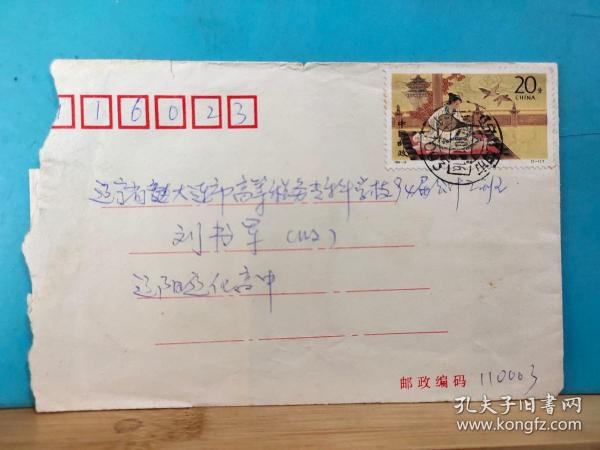 116023
20分
CHINA
中国邮政
辽宁省 大连市高等税务专科学校94届会计二班
刘书军(收)
辽阳辽化高中
邮政编码 110003
孔夫子旧书网
www.kongfz.com